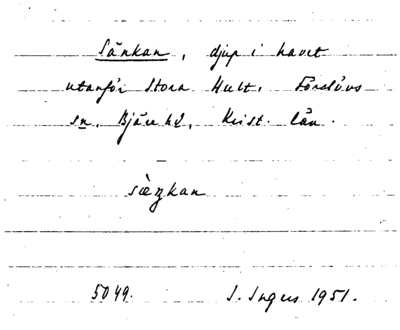 Sänkan, djup i havet
utanför Stora Hult, Förslövs
sn, Bjäre hd, Krist. län.
sæŋkan
5049. I. Ingers 1951.